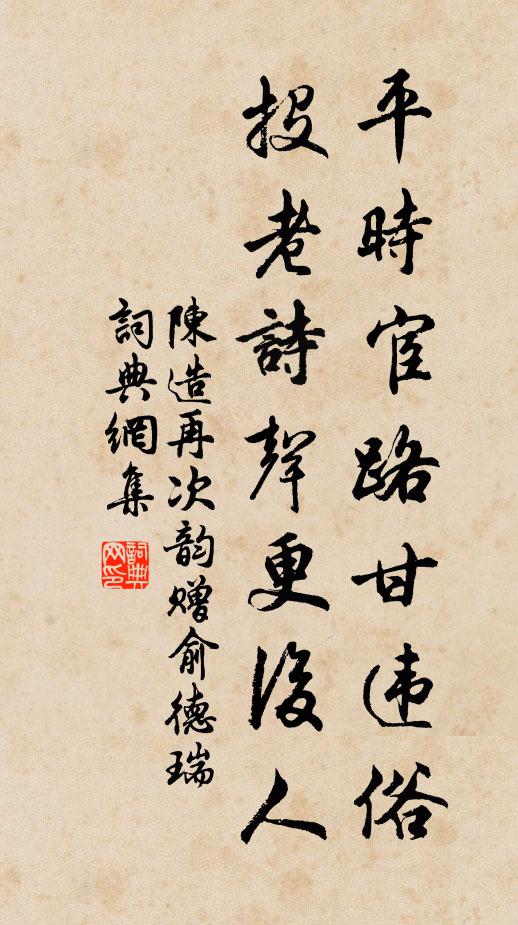 平時宦路甘违俗
投老詩聲更後人
陳造再次韵赠俞德瑞
詞典網集
詞典网印